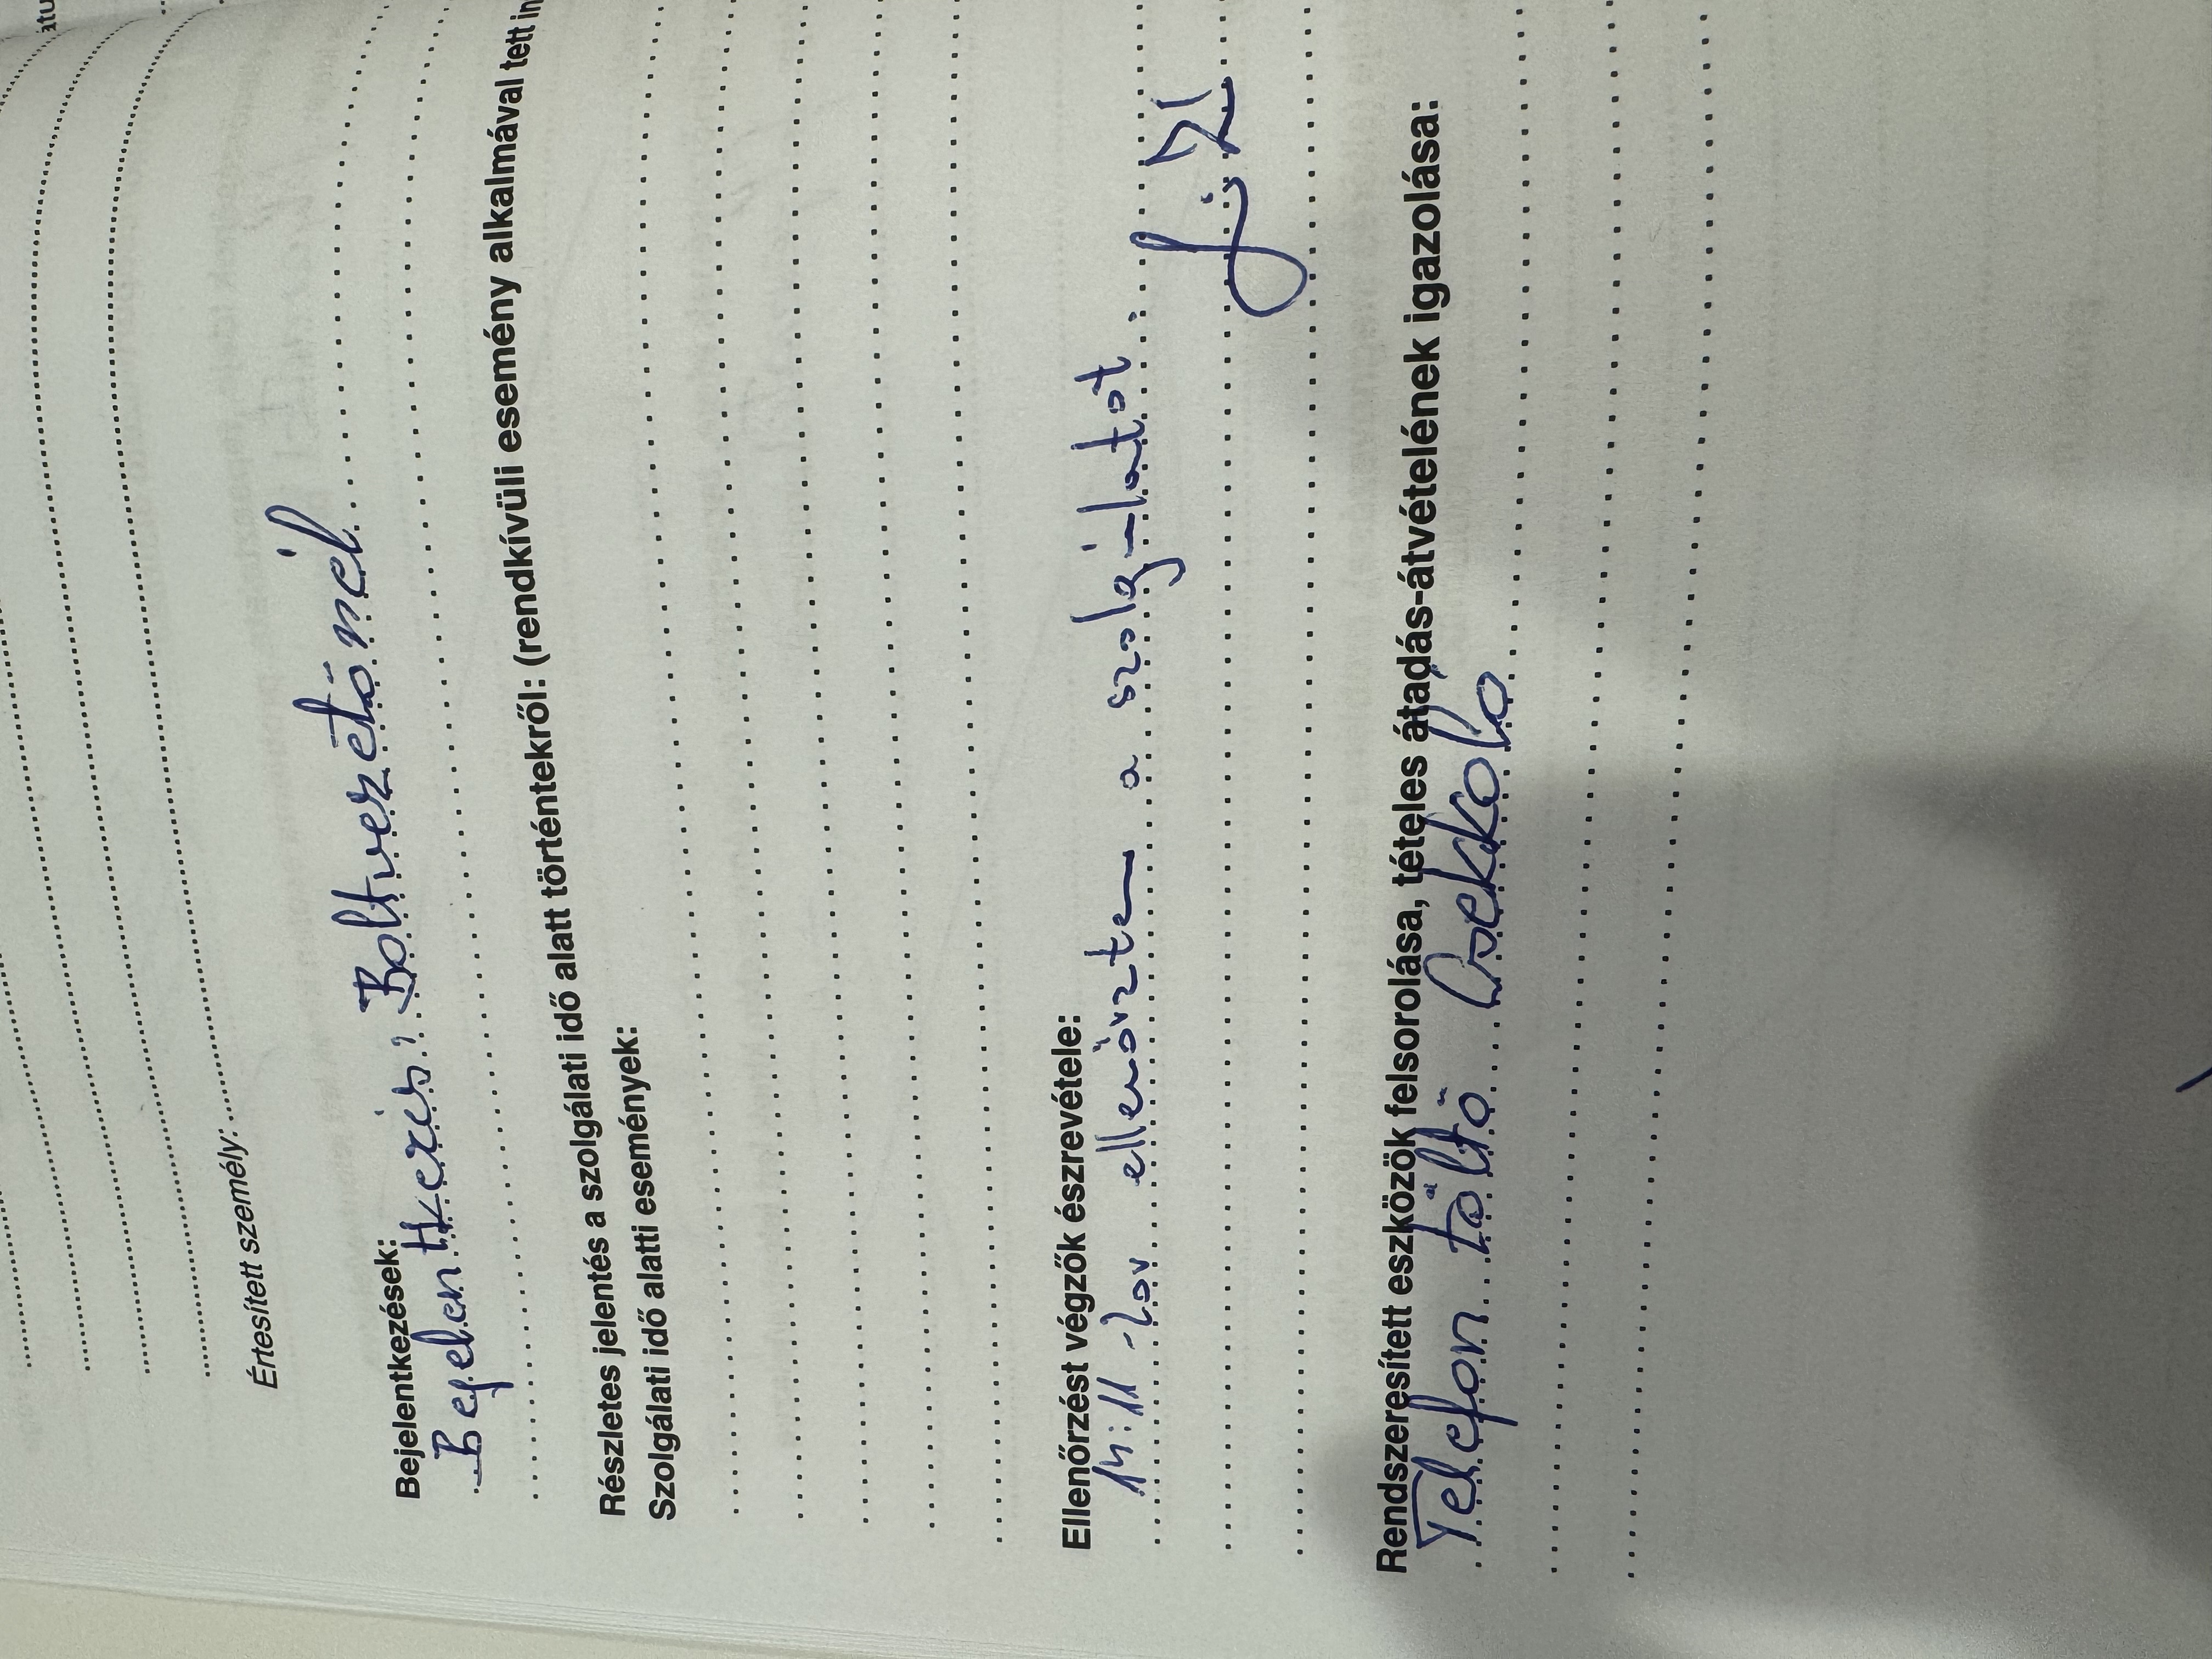 Értesített személy:
Bejelentkezések:
Bejelentkezés: Boltvezetőnél
Részletes jelentés a szolgálati idő alatt történtekről: (rendkívüli esemény alkalmával tett in
Szolgálati idő alatti események:
Ellenőrzést végzők észrevétele:
14:11-kor ellenőriztem a szolgálatot.
Rendszeresített eszközök felsorolása, tételes átadás-átvételének igazolása:
Telefon töltő